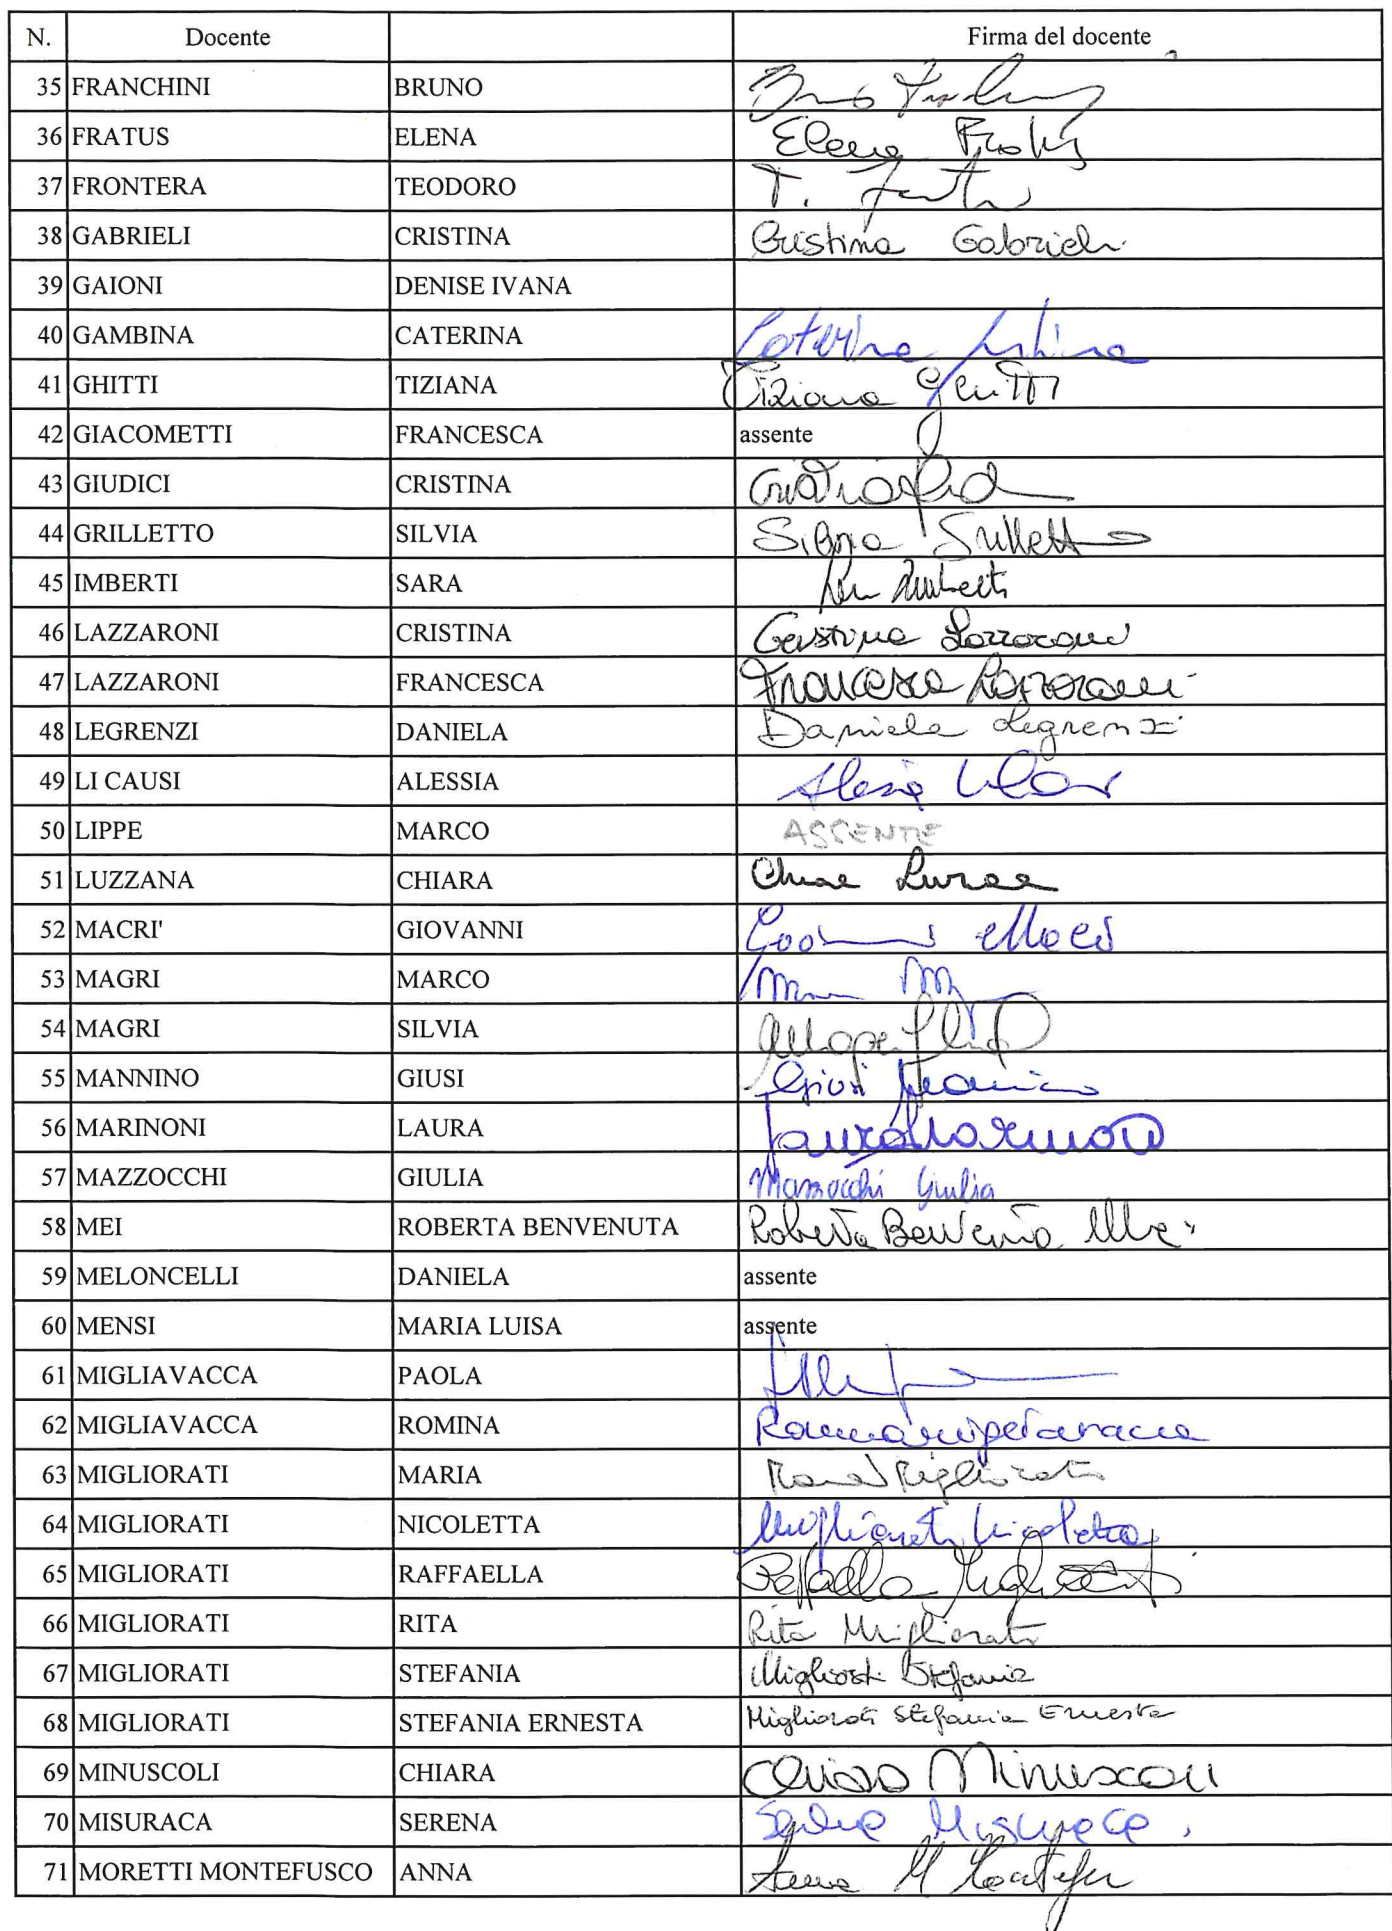 N. Docente Firma del docente
35 FRANCHINI BRUNO
36 FRATUS ELENA Elena
37 FRONTERA TEODORO T.
38 GABRIELI CRISTINA Cristina Gabrieli
39 GAIONI DENISE IVANA
40 GAMBINA CATERINA Caterina
41 GHITTI TIZIANA Tiziana Ghitti
42 GIACOMETTI FRANCESCA assente
43 GIUDICI CRISTINA
44 GRILLETTO SILVIA Silvia Grilletto
45 IMBERTI SARA Imberti
46 LAZZARONI CRISTINA Cristina Lazzaroni
47 LAZZARONI FRANCESCA Francesca Lazzaroni
48 LEGRENZI DANIELA Daniela Legrenzi
49 LI CAUSI ALESSIA
50 LIPPE MARCO ASSENTE
51 LUZZANA CHIARA
52 MACRI' GIOVANNI
53 MAGRI MARCO
54 MAGRI SILVIA
55 MANNINO GIUSI Giusi
56 MARINONI LAURA Laura Marinoni
57 MAZZOCCHI GIULIA Mazzocchi Giulia
58 MEI ROBERTA BENVENUTA Roberta Benvenuta Mei
59 MELONCELLI DANIELA assente
60 MENSI MARIA LUISA assente
61 MIGLIAVACCA PAOLA
62 MIGLIAVACCA ROMINA Romina Migliavacca
63 MIGLIORATI MARIA Maria Migliorati
64 MIGLIORATI NICOLETTA Migliorati Nicoletta
65 MIGLIORATI RAFFAELLA Raffaella Migliorati
66 MIGLIORATI RITA Rita Migliorati
67 MIGLIORATI STEFANIA Migliorati Stefania
68 MIGLIORATI STEFANIA ERNESTA Migliorati Stefania Ernesta
69 MINUSCOLI CHIARA Chiara Minuscoli
70 MISURACA SERENA Serena Misuraca
71 MORETTI MONTEFUSCO ANNA Anna M